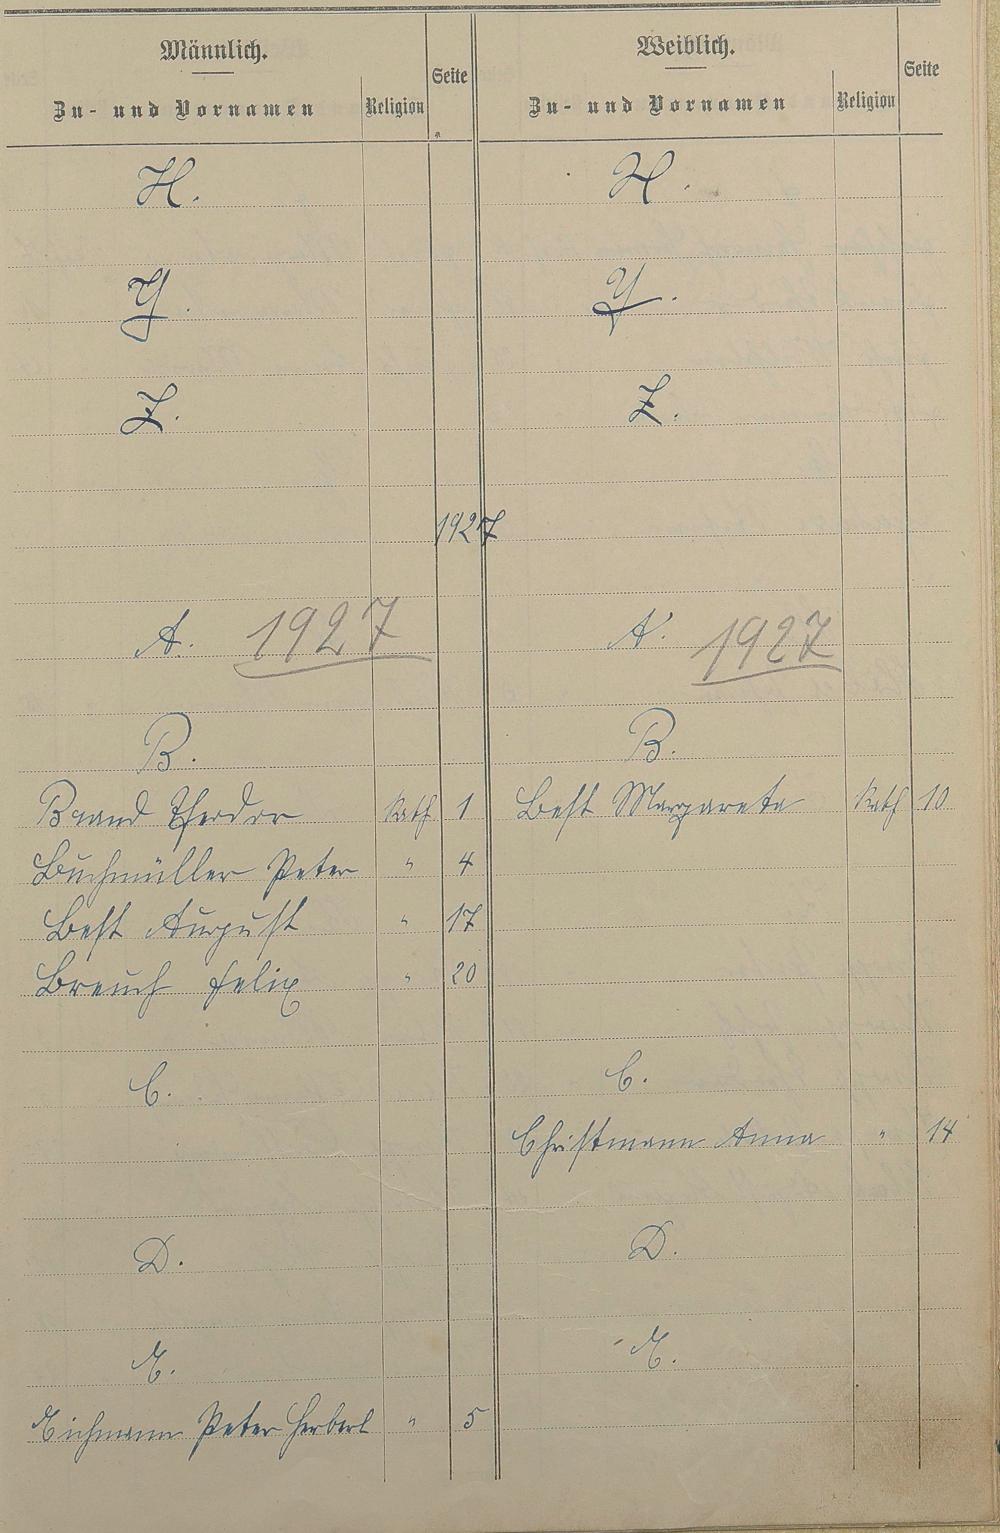 Männlich.
Zu- und Vornamen Religion Seite
X.
Y.
Z.
1927
A. 1927
B.
Brand Theodor Kath 1
Buchmüller Peter " 4
Best August " 17
Breuch Felix " 20
C.
D.
E.
Eichmann Peter Herbert " 5
Weiblich.
Zu- und Vornamen Religion Seite
X.
Y.
Z.
A. 1927
B.
Best Margareta Kath 10
C.
Christmann Anna " 14
D.
E.